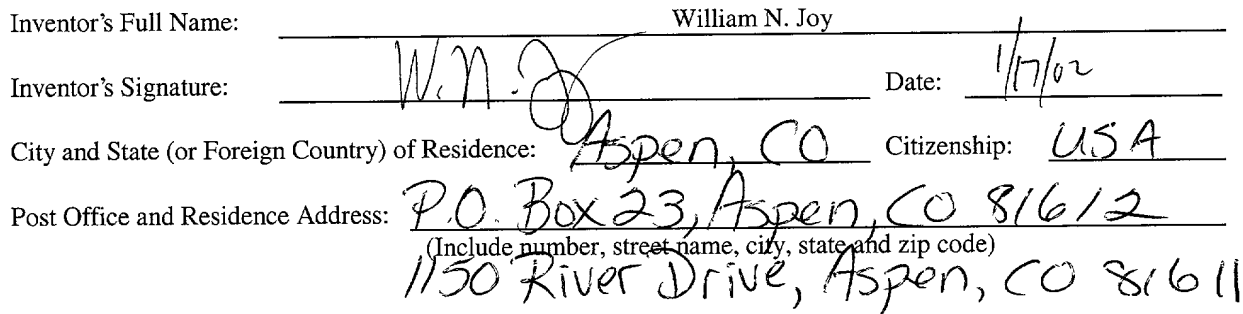 Inventor's Full Name: William N. Joy
Inventor's Signature: W. N. Joy Date: 1/17/02
City and State (or Foreign Country) of Residence: Aspen, CO Citizenship: USA
Post Office and Residence Address: P.O. Box 23, Aspen, CO 81612
(Include number, street name, city, state and zip code)
1150 River Drive, Aspen, CO 81611